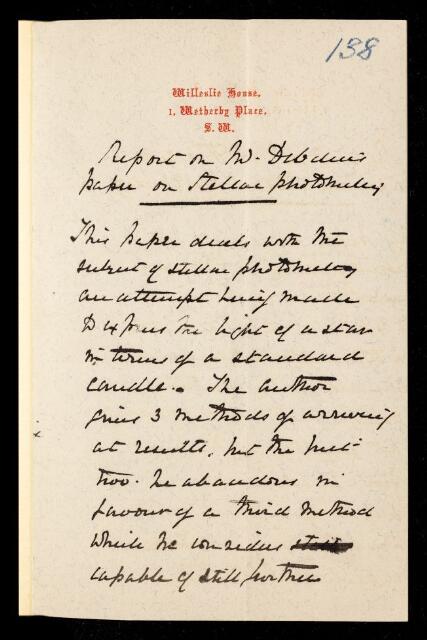 138
Willeslie House,
1, Wetherby Place,
S. W.
Report on Mr. Dibdin's
paper on Stellar photometry
This paper deals with the
subject of stellar photometry
an attempt being made
to express the light of a star
in terms of a standard
candle. The author
gives 3 methods of arriving
at results, but the first
two he abandons in
favour of a third method
which he considers
capable of still further